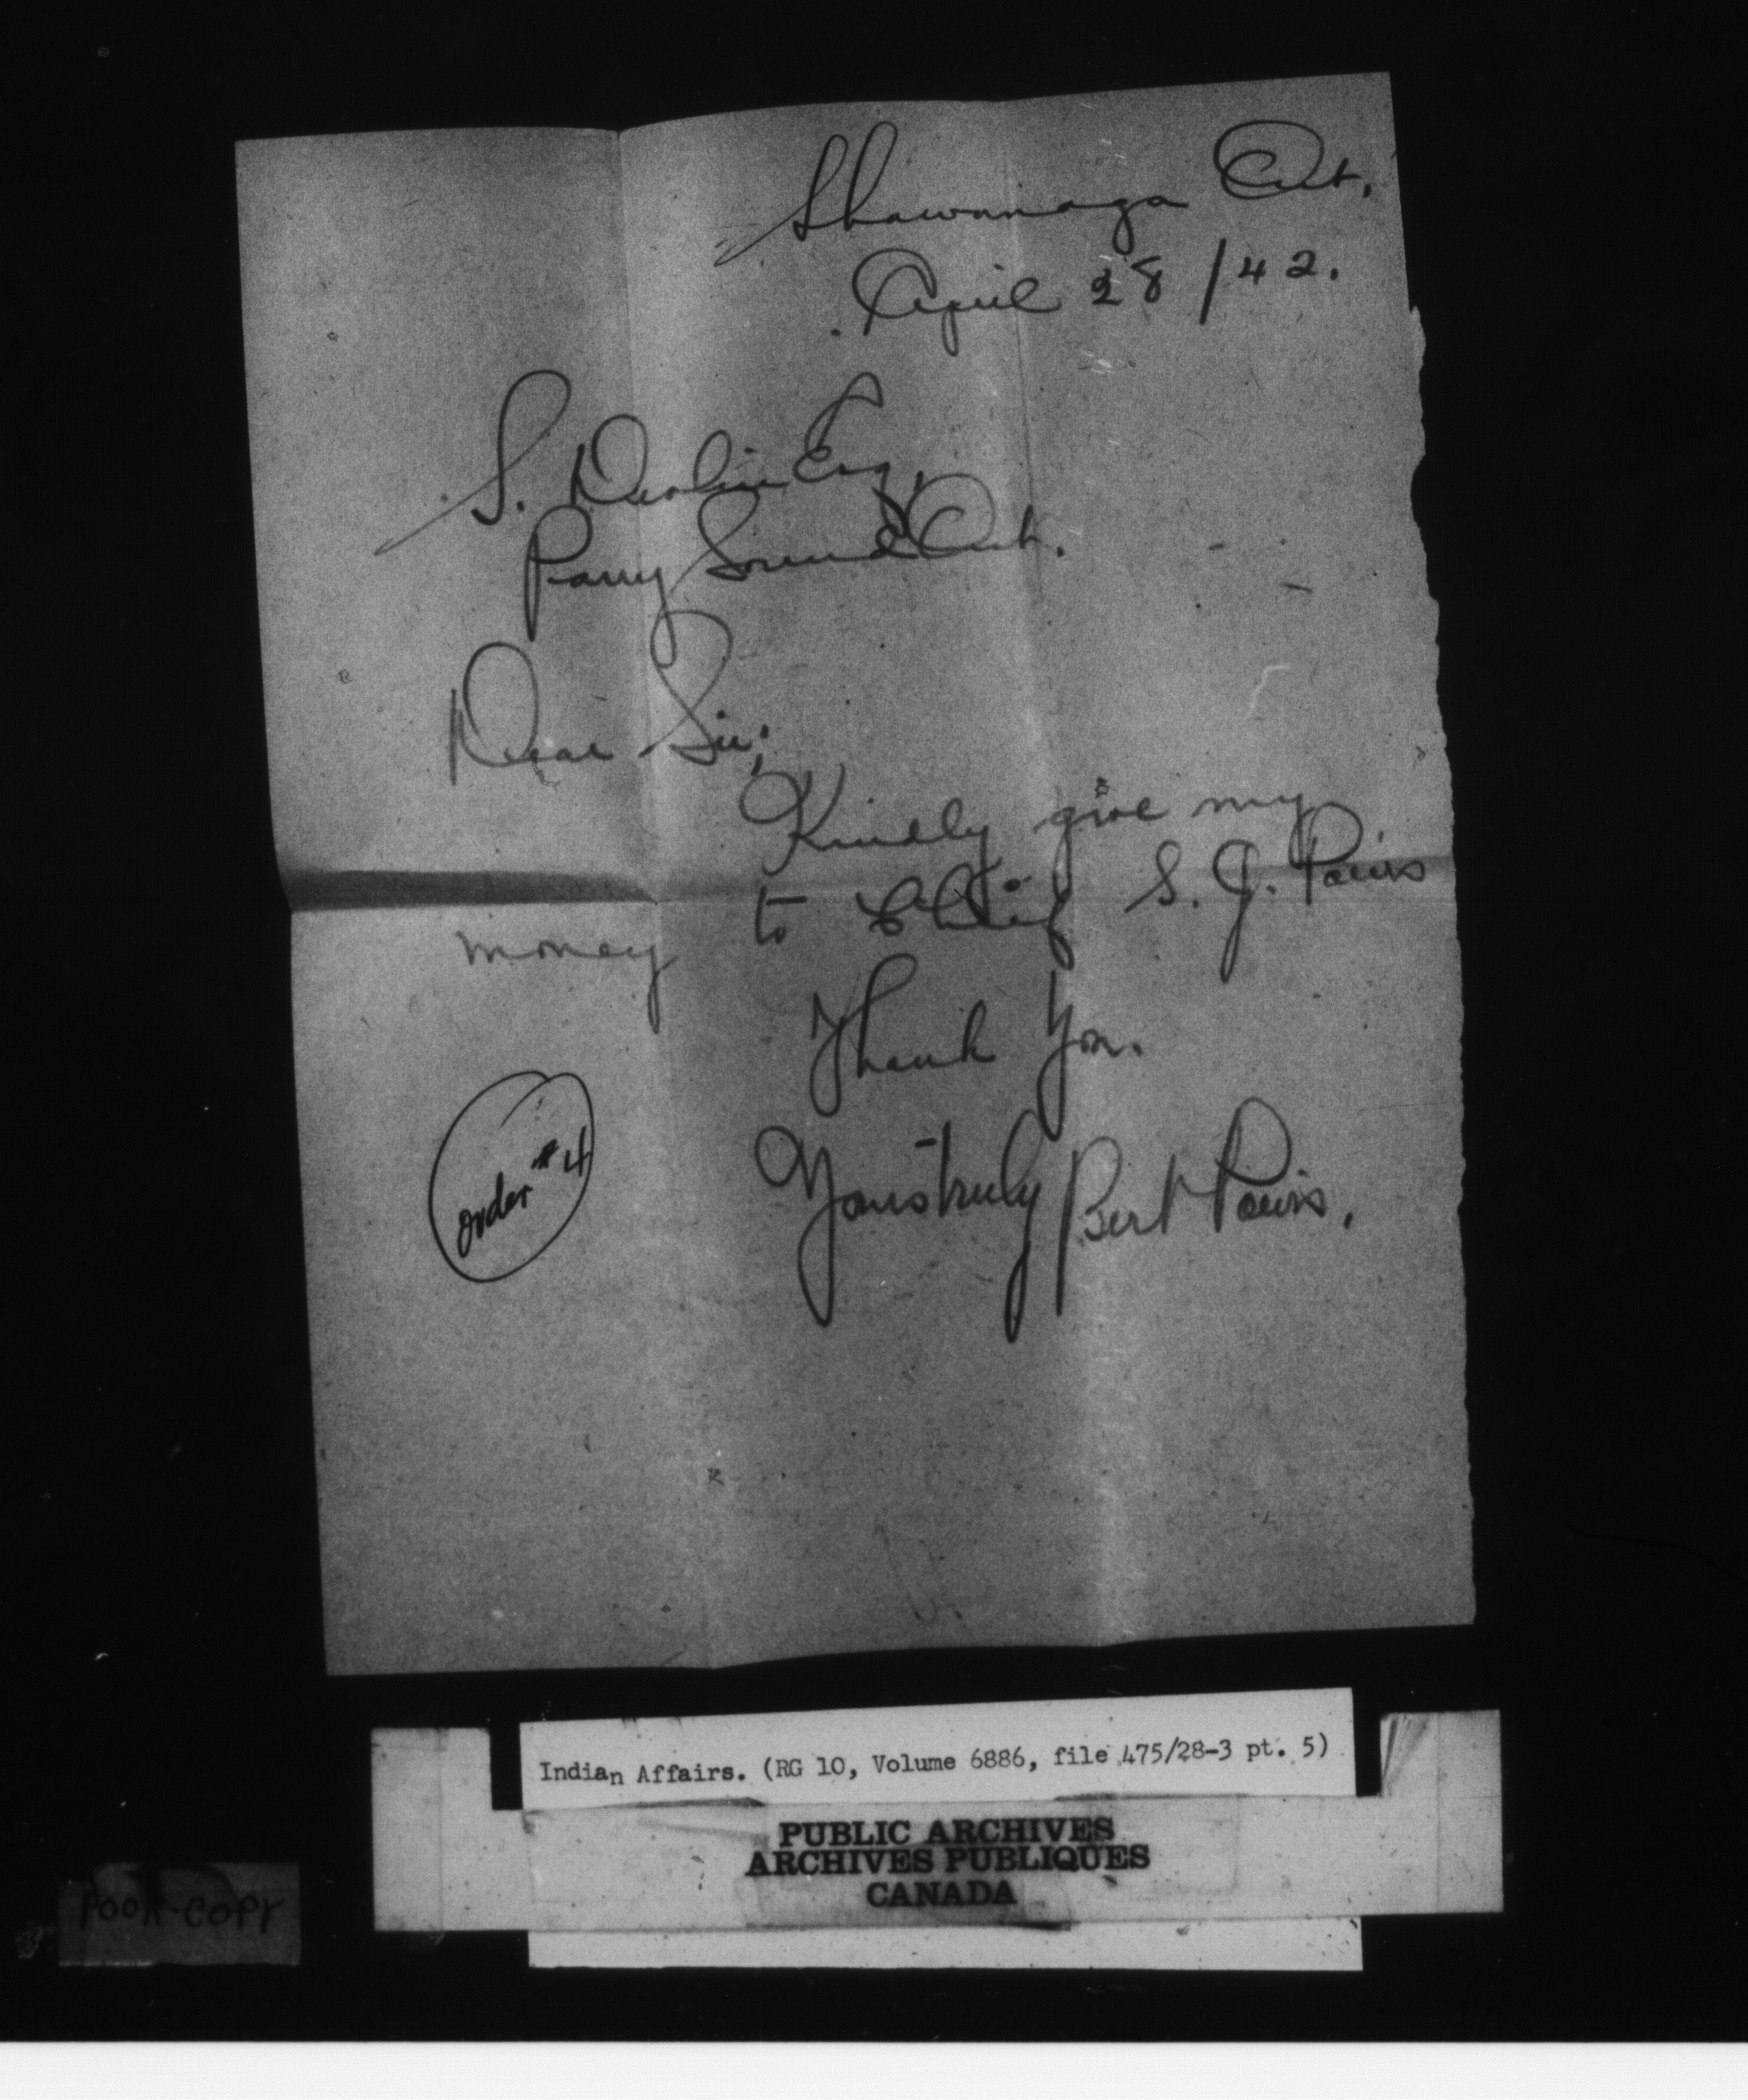 Shawanaga Ont.
April 28/42.
S. Devlin Esq,
Parry Sound Ont.
Dear Sir;
Kindly give my
money to Chief S. G. Pawis
Thank You.
Yours truly Bert Pawis.
order #4
Indian Affairs. (RG 10, Volume 6886, file 475/28-3 pt. 5)
PUBLIC ARCHIVES
ARCHIVES PUBLIQUES
CANADA
POOR COPY